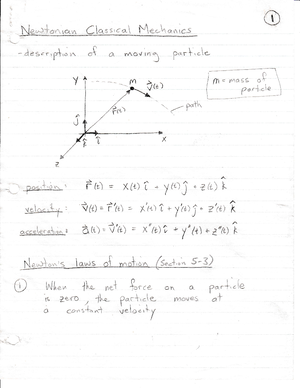 ①
Newtonian Classical Mechanics
- description of a moving particle
y
m
v⃗(t)
m = mass of particle
r⃗(t)
path
ĵ
î
k̂
x
z
position: r⃗(t) = x(t) î + y(t) ĵ + z(t) k̂
velocity: v⃗(t) = r⃗'(t) = x'(t) î + y'(t) ĵ + z'(t) k̂
acceleration: a⃗(t) = v⃗'(t) = x''(t) î + y''(t) + z''(t) k̂
Newton's laws of motion (Section 5-3)
① When the net force on a particle
is zero, the particle moves at
a constant velocity